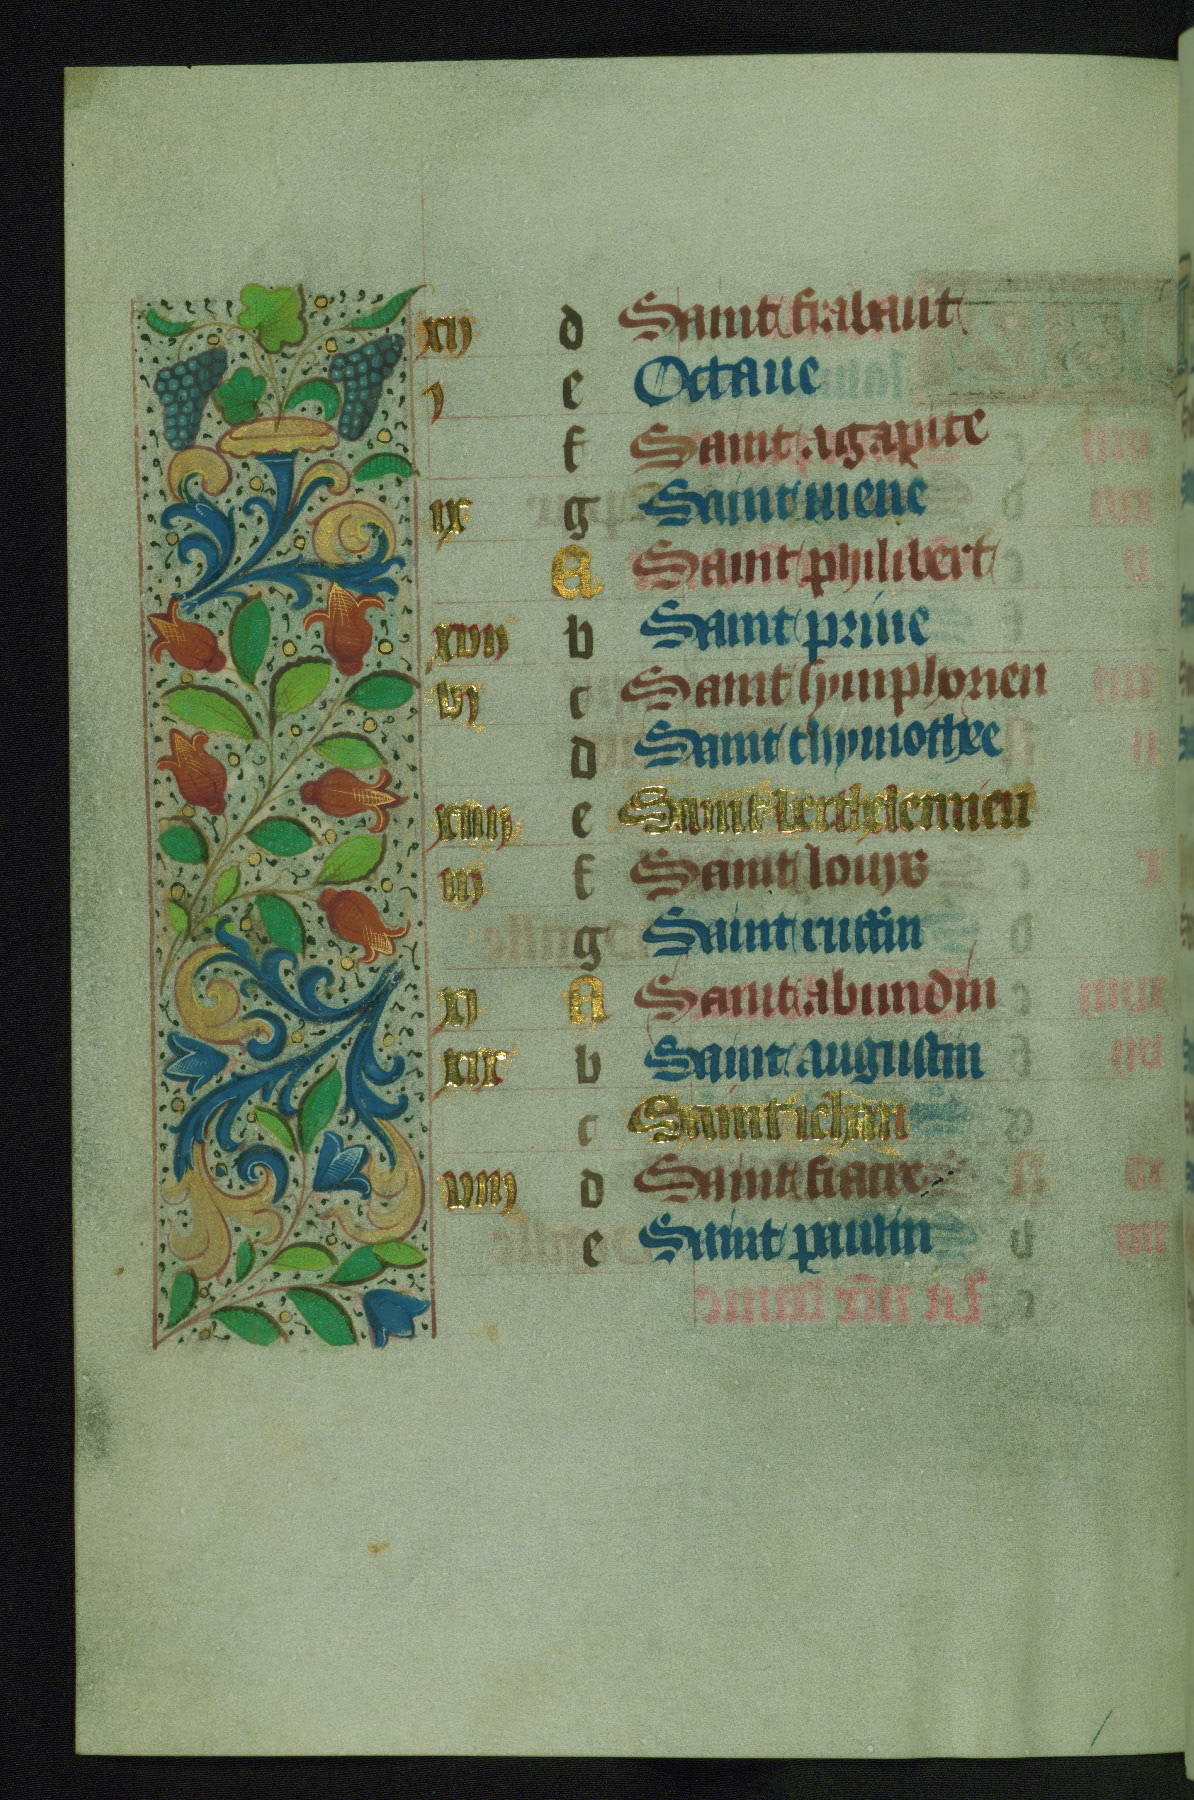 xii d Saint frabaut
i e Octaue
f Saint agapite
ix g Saint mene
A Saint philibert
xvii b Saint priue
vi c Saint symphorien
d Saint thymothee
xiiii e Saint berthelemieu
iii f Saint louys
g Saint ruffin
xi A Saint abundin
xix b Saint augustin
c Saint iehan
viii d Saint fiacre
e Saint paulin